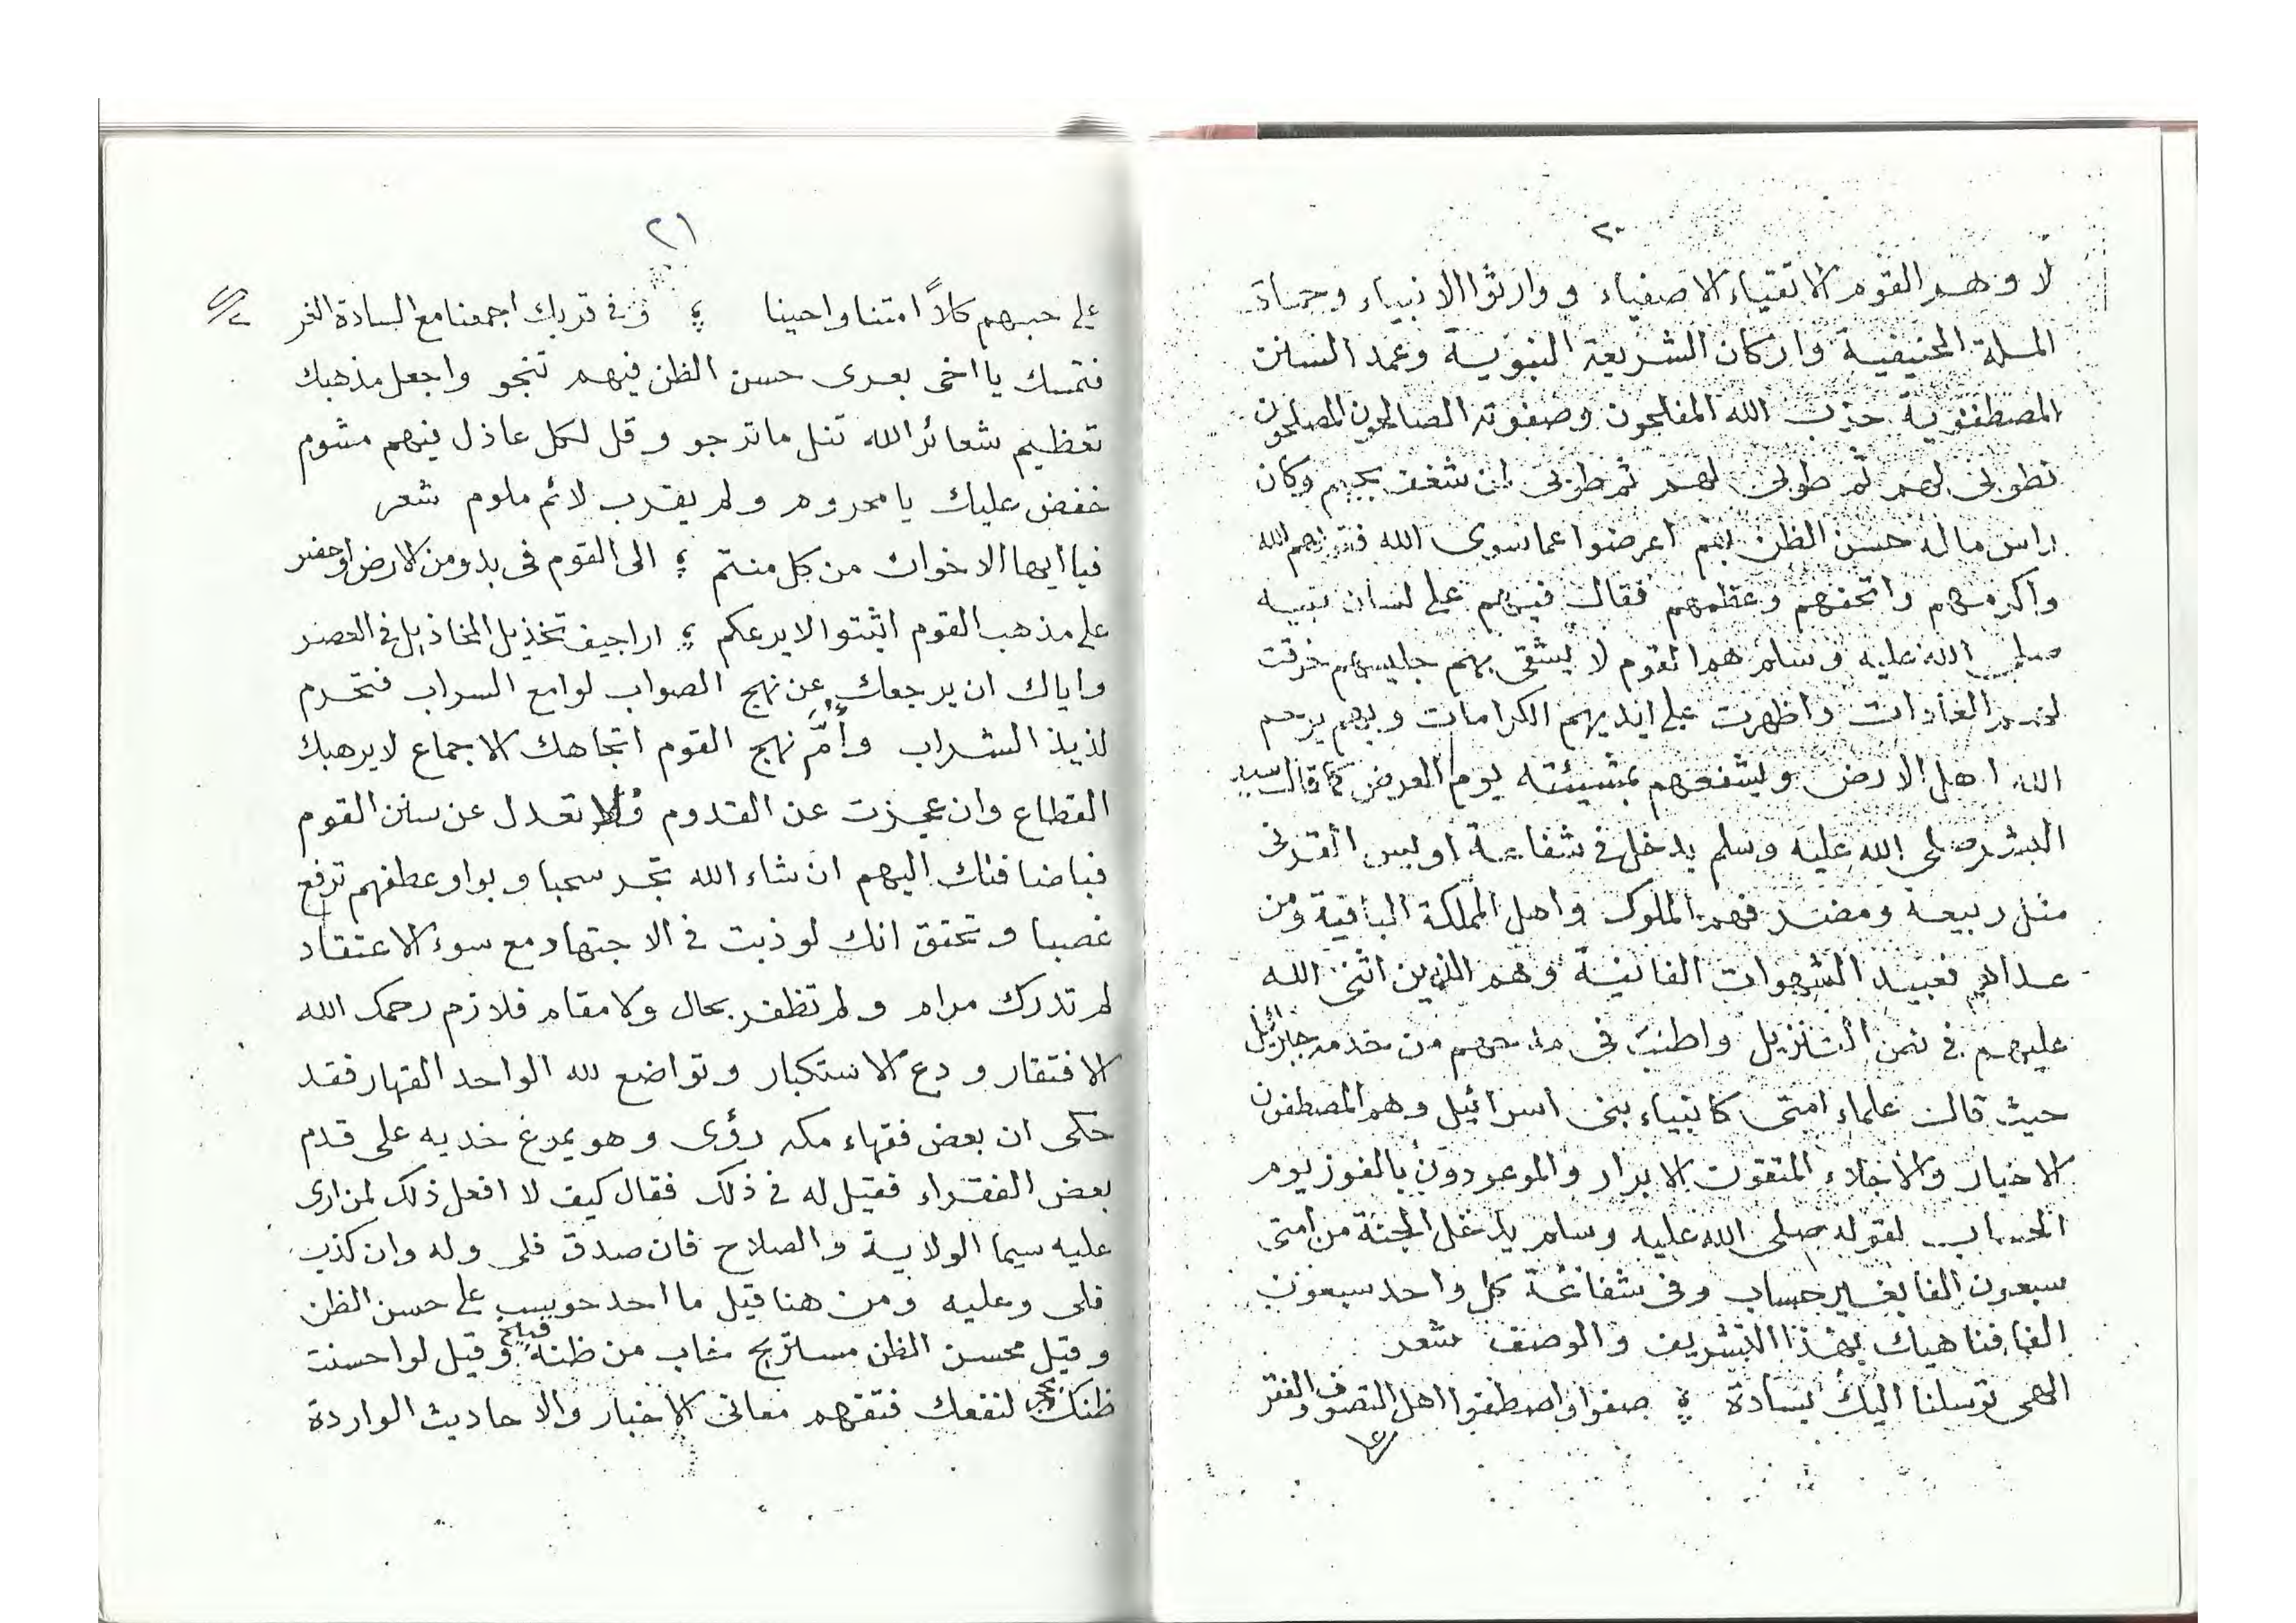 ٢٠
لا وهم القوم الاتقياء الاصفياء ووارثوا الانبياء وحماة
الملة الحنيفية واركان الشريعة النبوية وعمد السنن
المصطفوية حزب الله المفلحون وصفوته الصالحون المصلحون
فطوبى لهم ثم طوبى لهم ثم طوبى لمن شغف بحبهم وكان
راس ماله حسن الظن بهم اعرضوا عما سوى الله فقربهم الله
واكرمهم واتحفهم وعظمهم فقال فيهم على لسان نبيه
صلى الله عليه وسلم هم القوم لا يشقى بهم جليسهم خرقت
لهم العادات واظهرت على ايديهم الكرامات وبهم يرحم
الله اهل الارض ويشفعهم بمشيئته يوم العرض كما قال سيد
البشر صلى الله عليه وسلم يدخل في شفاعة اويس القرنى
مثل ربيعة ومضر فهم الملوك واهل المملكة الباقية ومن
عداهم فعبيد الشهوات الفانية وهم الذين اثنى الله
عليهم في نص التنزيل واطنب فى مدحهم من خدمه جبرائيل
حيث قال علماء امتى كانبياء بنى اسرائيل وهم المصطفون
الاخيار والاجلاء المتقون الابرار والموعودون بالفوز يوم
الحساب لقوله صلى الله عليه وسلم يدخل الجنة من امتى
سبعون الفا بغير حساب وفى شفاعة كل واحد سبعون
الفا فناهيك بهذا التشريف والوصف شعر
الهى توسلنا اليك بسادة ؛ صفوا واصطفوا اهل التصوف والفقر
٢١
على حبهم كلاً امتنا واحينا ؛ وفى قربك اجمعنا مع السادة الغر
فتمسك يا اخى بعرى حسن الظن فيهم تنجو واجعل مذهبك
تعظيم شعائر الله تنل ما ترجو وقل لكل عاذل فيهم مشوم
خفض عليك يا محروم ولم يقرب لائم ملوم شعر
فيا أيها الاخوان من كل منتم ؛ الى القوم فى بدو من الارض او حضر
على مذهب القوم اثبتوا لا يرعكم ؛ اراجيف تخذيل المخاذيل فى الحصر
واياك ان يرجعك عن نهج الصواب لوامع السراب فتحرم
لذيذ الشراب وأُمَّ نهج القوم اتجاهك الاجماع لا يرهبك
القطاع وان عجزت عن القدوم فلا تعدل عن سنن القوم
فباضافتك اليهم ان شاء الله تجر سحبا وبواو عطفهم ترفع
غصبا وتحقق انك لو ذبت فى الاجتهاد مع سوء الاعتقاد
لم تدرك مرام ولم تظفر بحال ولا مقام فلازم رحمك الله
الافتقار ودع الاستكبار وتواضع لله الواحد القهار فقد
حكى ان بعض فقهاء مكه رؤى وهو يمرغ خديه على قدم
بعض الفقراء فقيل له فى ذلك فقال كيف لا افعل ذلك لمن ارى
عليه سيما الولاية والصلاح فان صدق فلى وله وان كذب
فلى وعليه ومن هنا قيل ما احد حوسب على حسن الظن
وقيل محسن الظن مستريح مثاب من ظنه قبيح وقيل لو احسنت
ظنك لنفعك فتفهم معانى الاخبار والاحاديث الواردة